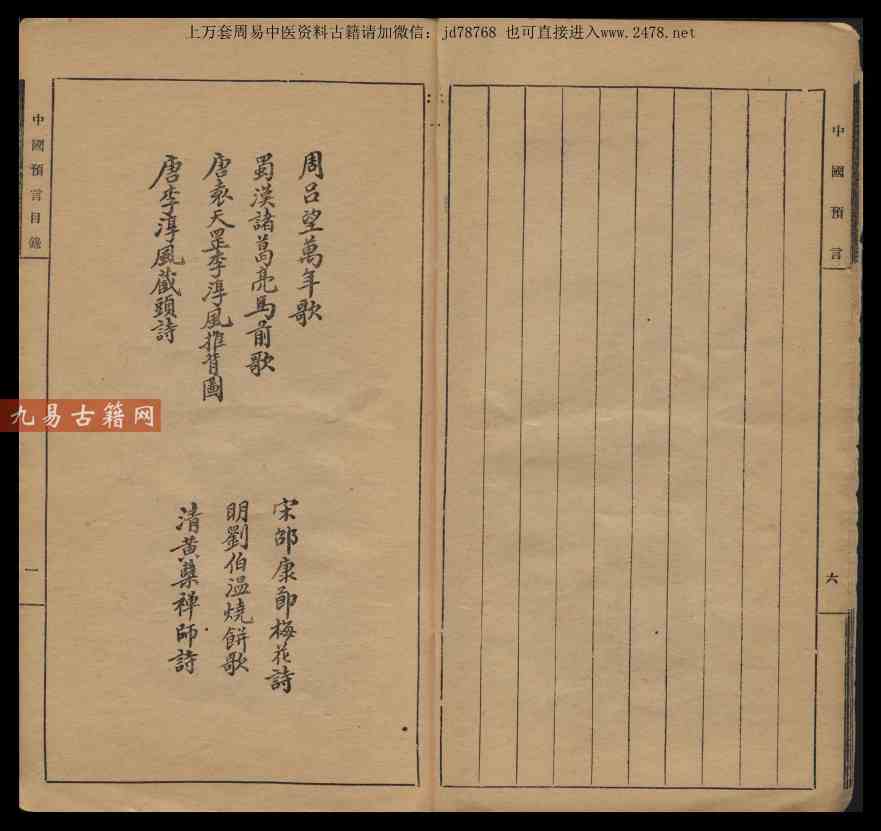 上万套周易中医资料古籍请加微信：jd78768 也可直接进入www.2478.net
中國預言
六
周呂望萬年歌
蜀漢諸葛亮馬前歌
唐袁天罡李淳風推背圖
唐李淳風藏頭詩
宋邵康節梅花詩
明劉伯温燒餅歌
清黃蘗禪師詩
中國預言目錄
一
九易古籍网